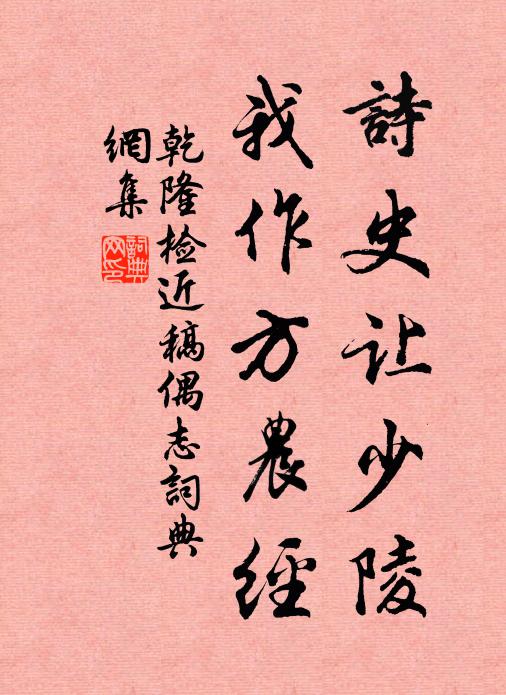 詩史让少陵
我作方農經
乾隆检近稿偶志詞典
網集
詞典
网印